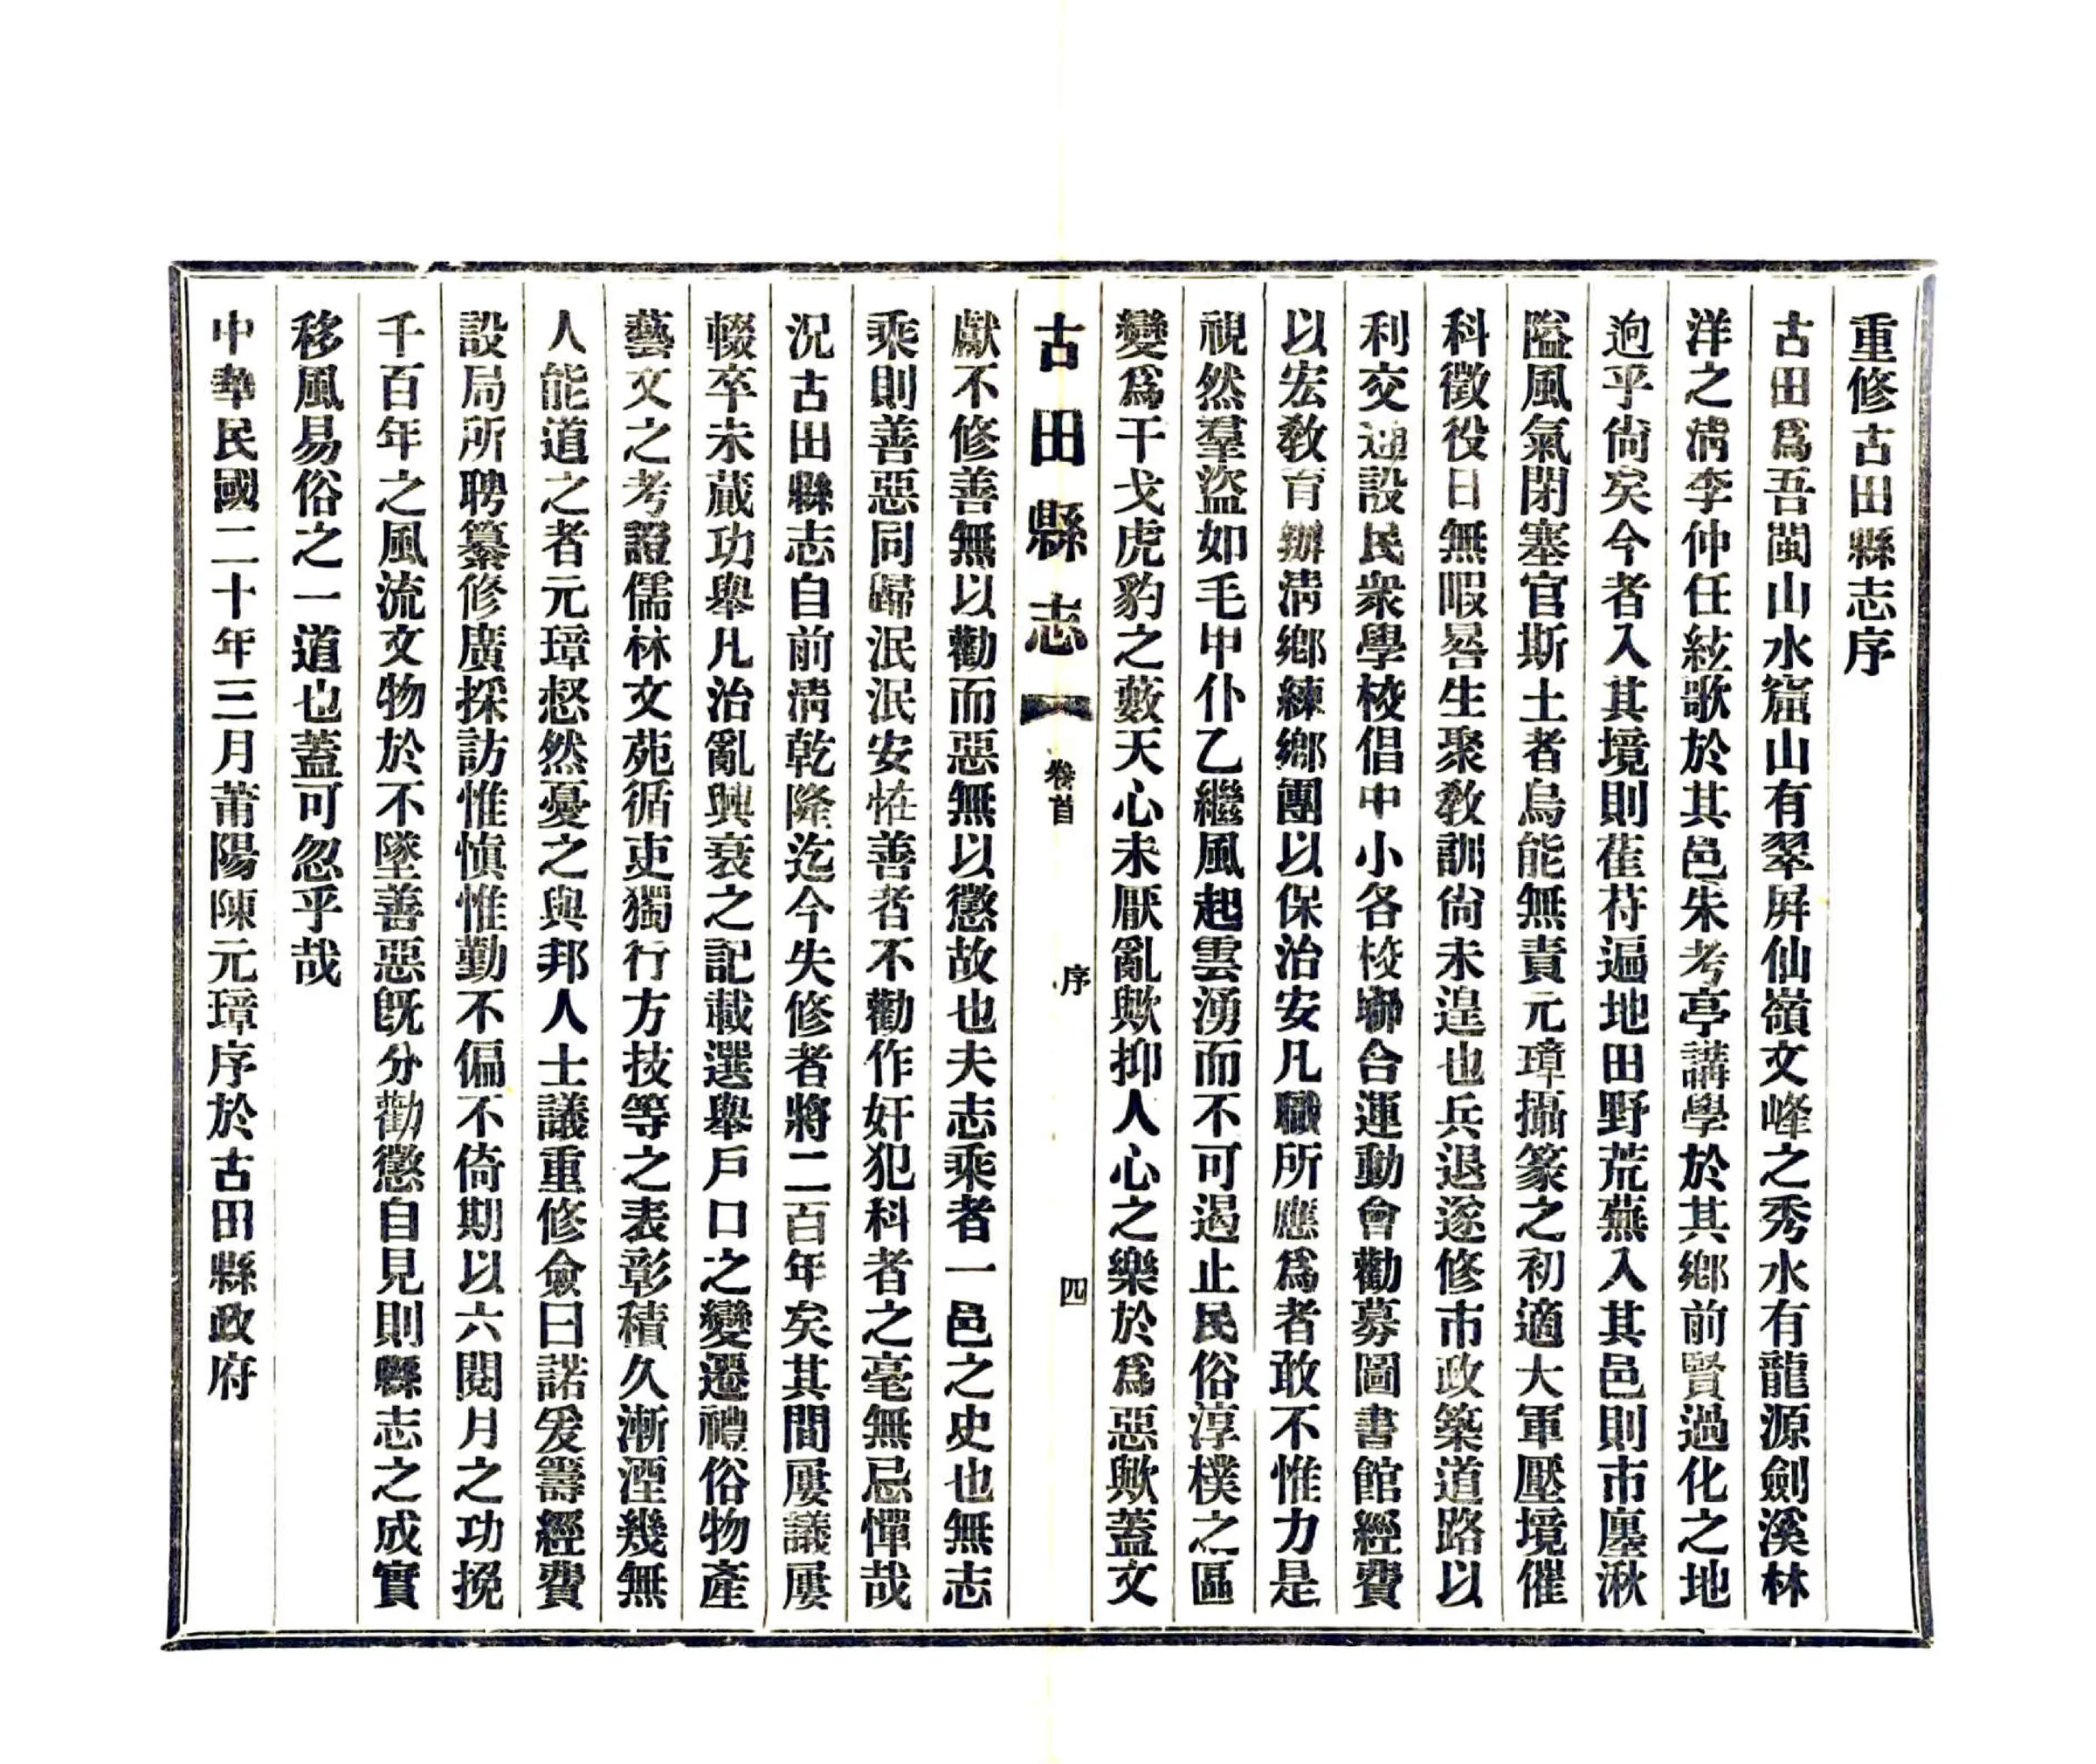 重修古田縣志序
古田爲吾閩山水窟山有翠屛仙嶺文峰之秀水有龍源劍溪林
洋之淸李仲任絃歌於其邑朱考亭講學於其鄕前賢過化之地
逈乎尙矣今者入其境則萑苻遍地田野荒蕪入其邑則市廛湫
隘風氣閉塞官斯土者烏能無責元璋攝篆之初適大軍壓境催
科徵役日無暇晷生聚敎訓尙未遑也兵退遂修市政築道路以
利交通設民衆學校倡中小各校聯合運動會勸募圖書館經費
以宏敎育辦淸鄕練鄕團以保治安凡職所應爲者敢不惟力是
視然羣盜如毛甲仆乙繼風起雲湧而不可遏止民俗淳樸之區
變爲干戈虎豹之藪天心未厭亂歟抑人心之樂於爲惡歟蓋文
古田縣志 卷首 序 四
獻不修善無以勸而惡無以懲故也夫志乘者一邑之史也無志
乘則善惡同歸泯泯安怪善者不勸作奸犯科者之毫無忌憚哉
況古田縣志自前淸乾隆迄今失修者將二百年矣其間屢議屢
輟卒未蕆功舉凡治亂興衰之記載選舉戶口之變遷禮俗物產
藝文之考證儒林文苑循吏獨行方技等之表彰積久漸湮幾無
人能道之者元璋惄然憂之與邦人士議重修僉曰諾爰籌經費
設局所聘纂修廣採訪惟愼惟勤不偏不倚期以六閱月之功挽
千百年之風流文物於不墜善惡旣分勸懲自見則縣志之成實
移風易俗之一道也蓋可忽乎哉
中華民國二十年三月莆陽陳元璋序於古田縣政府